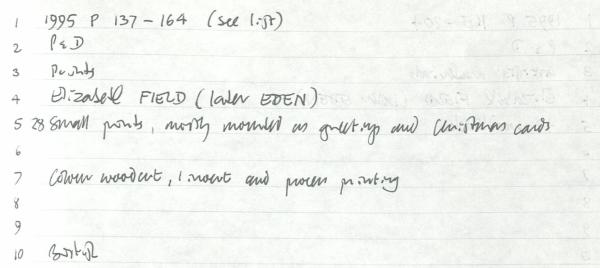 1 1995 P 137-164 (see list)
2 P&D
3 Prints
4 Elizabeth FIELD (later EDEN)
5 28 small prints, mostly mounted as greetings and Christmas cards
6
7 Colour woodcut, linocut and process printing
8
9
10 British